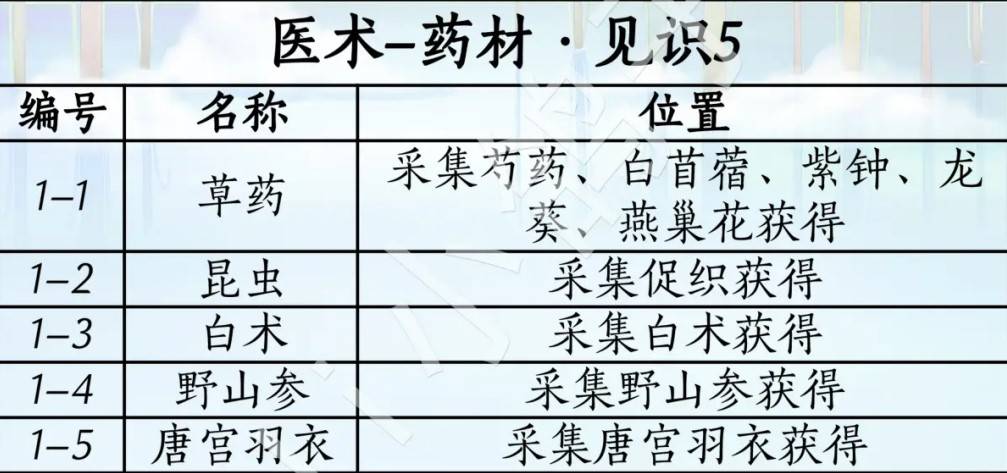 医术-药材·见识5
编号 名称 位置
1-1 草药 采集芍药、白首蓿、紫钟、龙
葵、燕巢花获得
1-2 昆虫 采集促织获得
1-3 白术 采集白术获得
1-4 野山参 采集野山参获得
1-5 唐宫羽衣 采集唐宫羽衣获得